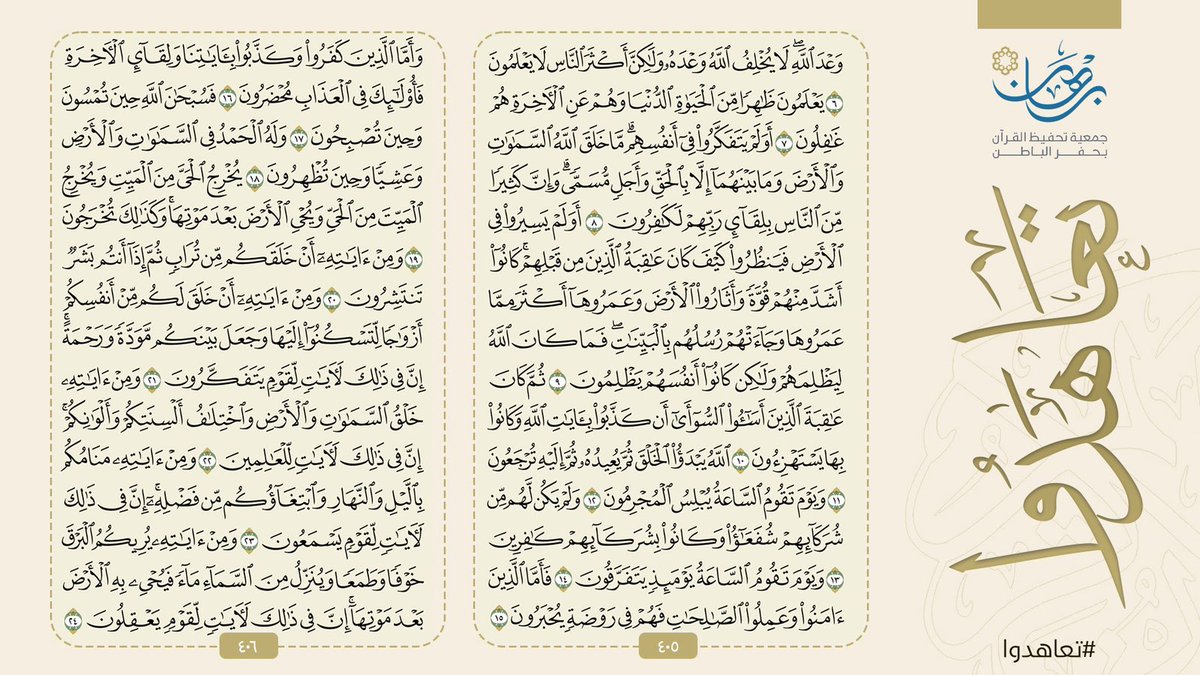 برهان
جمعية تحفيظ القرآن
بحفر الباطن
تعاهدوا
#تعاهدوا
وَعْدَ ٱللَّهِۖ لَا يُخْلِفُ ٱللَّهُ وَعْدَهُۥ وَلَٰكِنَّ أَكْثَرَ ٱلنَّاسِ لَا يَعْلَمُونَ
٦ يَعْلَمُونَ ظَٰهِرًا مِّنَ ٱلْحَيَوٰةِ ٱلدُّنْيَا وَهُمْ عَنِ ٱلْأٓخِرَةِ هُمْ
غَٰفِلُونَ ٧ أَوَلَمْ يَتَفَكَّرُوا۟ فِىٓ أَنفُسِهِمۗ مَّا خَلَقَ ٱللَّهُ ٱلسَّمَٰوَٰتِ
وَٱلْأَرْضَ وَمَا بَيْنَهُمَآ إِلَّا بِٱلْحَقِّ وَأَجَلٍ مُّسَمًّىۗ وَإِنَّ كَثِيرًا
مِّنَ ٱلنَّاسِ بِلِقَآئِ رَبِّهِمْ لَكَٰفِرُونَ ٨ أَوَلَمْ يَسِيرُوا۟ فِى
ٱلْأَرْضِ فَيَنظُرُوا۟ كَيْفَ كَانَ عَٰقِبَةُ ٱلَّذِينَ مِن قَبْلِهِمْۚ كَانُوٓا۟
أَشَدَّ مِنْهُمْ قُوَّةً وَأَثَارُوا۟ ٱلْأَرْضَ وَعَمَرُوهَآ أَكْثَرَ مِمَّا
عَمَرُوهَا وَجَآءَتْهُمْ رُسُلُهُم بِٱلْبَيِّنَٰتِۖ فَمَا كَانَ ٱللَّهُ
لِيَظْلِمَهُمْ وَلَٰكِن كَانُوٓا۟ أَنفُسَهُمْ يَظْلِمُونَ ٩ ثُمَّ كَانَ
عَٰقِبَةَ ٱلَّذِينَ أَسَٰٓـُٔوا۟ ٱلسُّوٓأَىٰٓ أَن كَذَّبُوا۟ بِـَٔايَٰتِ ٱللَّهِ وَكَانُوا۟
بِهَا يَسْتَهْزِءُونَ ١٠ ٱللَّهُ يَبْدَؤُا۟ ٱلْخَلْقَ ثُمَّ يُعِيدُهُۥ ثُمَّ إِلَيْهِ تُرْجَعُونَ
١١ وَيَوْمَ تَقُومُ ٱلسَّاعَةُ يُبْلِسُ ٱلْمُجْرِمُونَ ١٢ وَلَمْ يَكُن لَّهُم مِّن
شُرَكَآئِهِمْ شُفَعَٰٓؤُا۟ وَكَانُوا۟ بِشُرَكَآئِهِمْ كَٰفِرِينَ
١٣ وَيَوْمَ تَقُومُ ٱلسَّاعَةُ يَوْمَئِذٍ يَتَفَرَّقُونَ ١٤ فَأَمَّا ٱلَّذِينَ
ءَامَنُوا۟ وَعَمِلُوا۟ ٱلصَّٰلِحَٰتِ فَهُمْ فِى رَوْضَةٍ يُحْبَرُونَ ١٥
٤٠٥
وَأَمَّا ٱلَّذِينَ كَفَرُوا۟ وَكَذَّبُوا۟ بِـَٔايَٰتِنَا وَلِقَآئِ ٱلْأٓخِرَةِ
فَأُو۟لَٰٓئِكَ فِى ٱلْعَذَابِ مُحْضَرُونَ ١٦ فَسُبْحَٰنَ ٱللَّهِ حِينَ تُمْسُونَ
وَحِينَ تُصْبِحُونَ ١٧ وَلَهُ ٱلْحَمْدُ فِى ٱلسَّمَٰوَٰتِ وَٱلْأَرْضِ
وَعَشِيًّا وَحِينَ تُظْهِرُونَ ١٨ يُخْرِجُ ٱلْحَىَّ مِنَ ٱلْمَيِّتِ وَيُخْرِجُ
ٱلْمَيِّتَ مِنَ ٱلْحَىِّ وَيُحْىِ ٱلْأَرْضَ بَعْدَ مَوْتِهَاۚ وَكَذَٰلِكَ تُخْرَجُونَ
١٩ وَمِنْ ءَايَٰتِهِۦٓ أَنْ خَلَقَكُم مِّن تُرَابٍ ثُمَّ إِذَآ أَنتُم بَشَرٌ
تَنتَشِرُونَ ٢٠ وَمِنْ ءَايَٰتِهِۦٓ أَنْ خَلَقَ لَكُم مِّنْ أَنفُسِكُمْ
أَزْوَٰجًا لِّتَسْكُنُوٓا۟ إِلَيْهَا وَجَعَلَ بَيْنَكُم مَّوَدَّةً وَرَحْمَةًۚ
إِنَّ فِى ذَٰلِكَ لَأٓيَٰتٍ لِّقَوْمٍ يَتَفَكَّرُونَ ٢١ وَمِنْ ءَايَٰتِهِۦ
خَلْقُ ٱلسَّمَٰوَٰتِ وَٱلْأَرْضِ وَٱخْتِلَٰفُ أَلْسِنَتِكُمْ وَأَلْوَٰنِكُمْۚ
إِنَّ فِى ذَٰلِكَ لَأٓيَٰتٍ لِّلْعَٰلِمِينَ ٢٢ وَمِنْ ءَايَٰتِهِۦ مَنَامُكُم
بِٱلَّيْلِ وَٱلنَّهَارِ وَٱبْتِغَآؤُكُم مِّن فَضْلِهِۦٓۚ إِنَّ فِى ذَٰلِكَ
لَأٓيَٰتٍ لِّقَوْمٍ يَسْمَعُونَ ٢٣ وَمِنْ ءَايَٰتِهِۦ يُرِيكُمُ ٱلْبَرْقَ
خَوْفًا وَطَمَعًا وَيُنَزِّلُ مِنَ ٱلسَّمَآءِ مَآءً فَيُحْىِۦ بِهِ ٱلْأَرْضَ
بَعْدَ مَوْتِهَآۚ إِنَّ فِى ذَٰلِكَ لَأٓيَٰتٍ لِّقَوْمٍ يَعْقِلُونَ ٢٤
٤٠٦